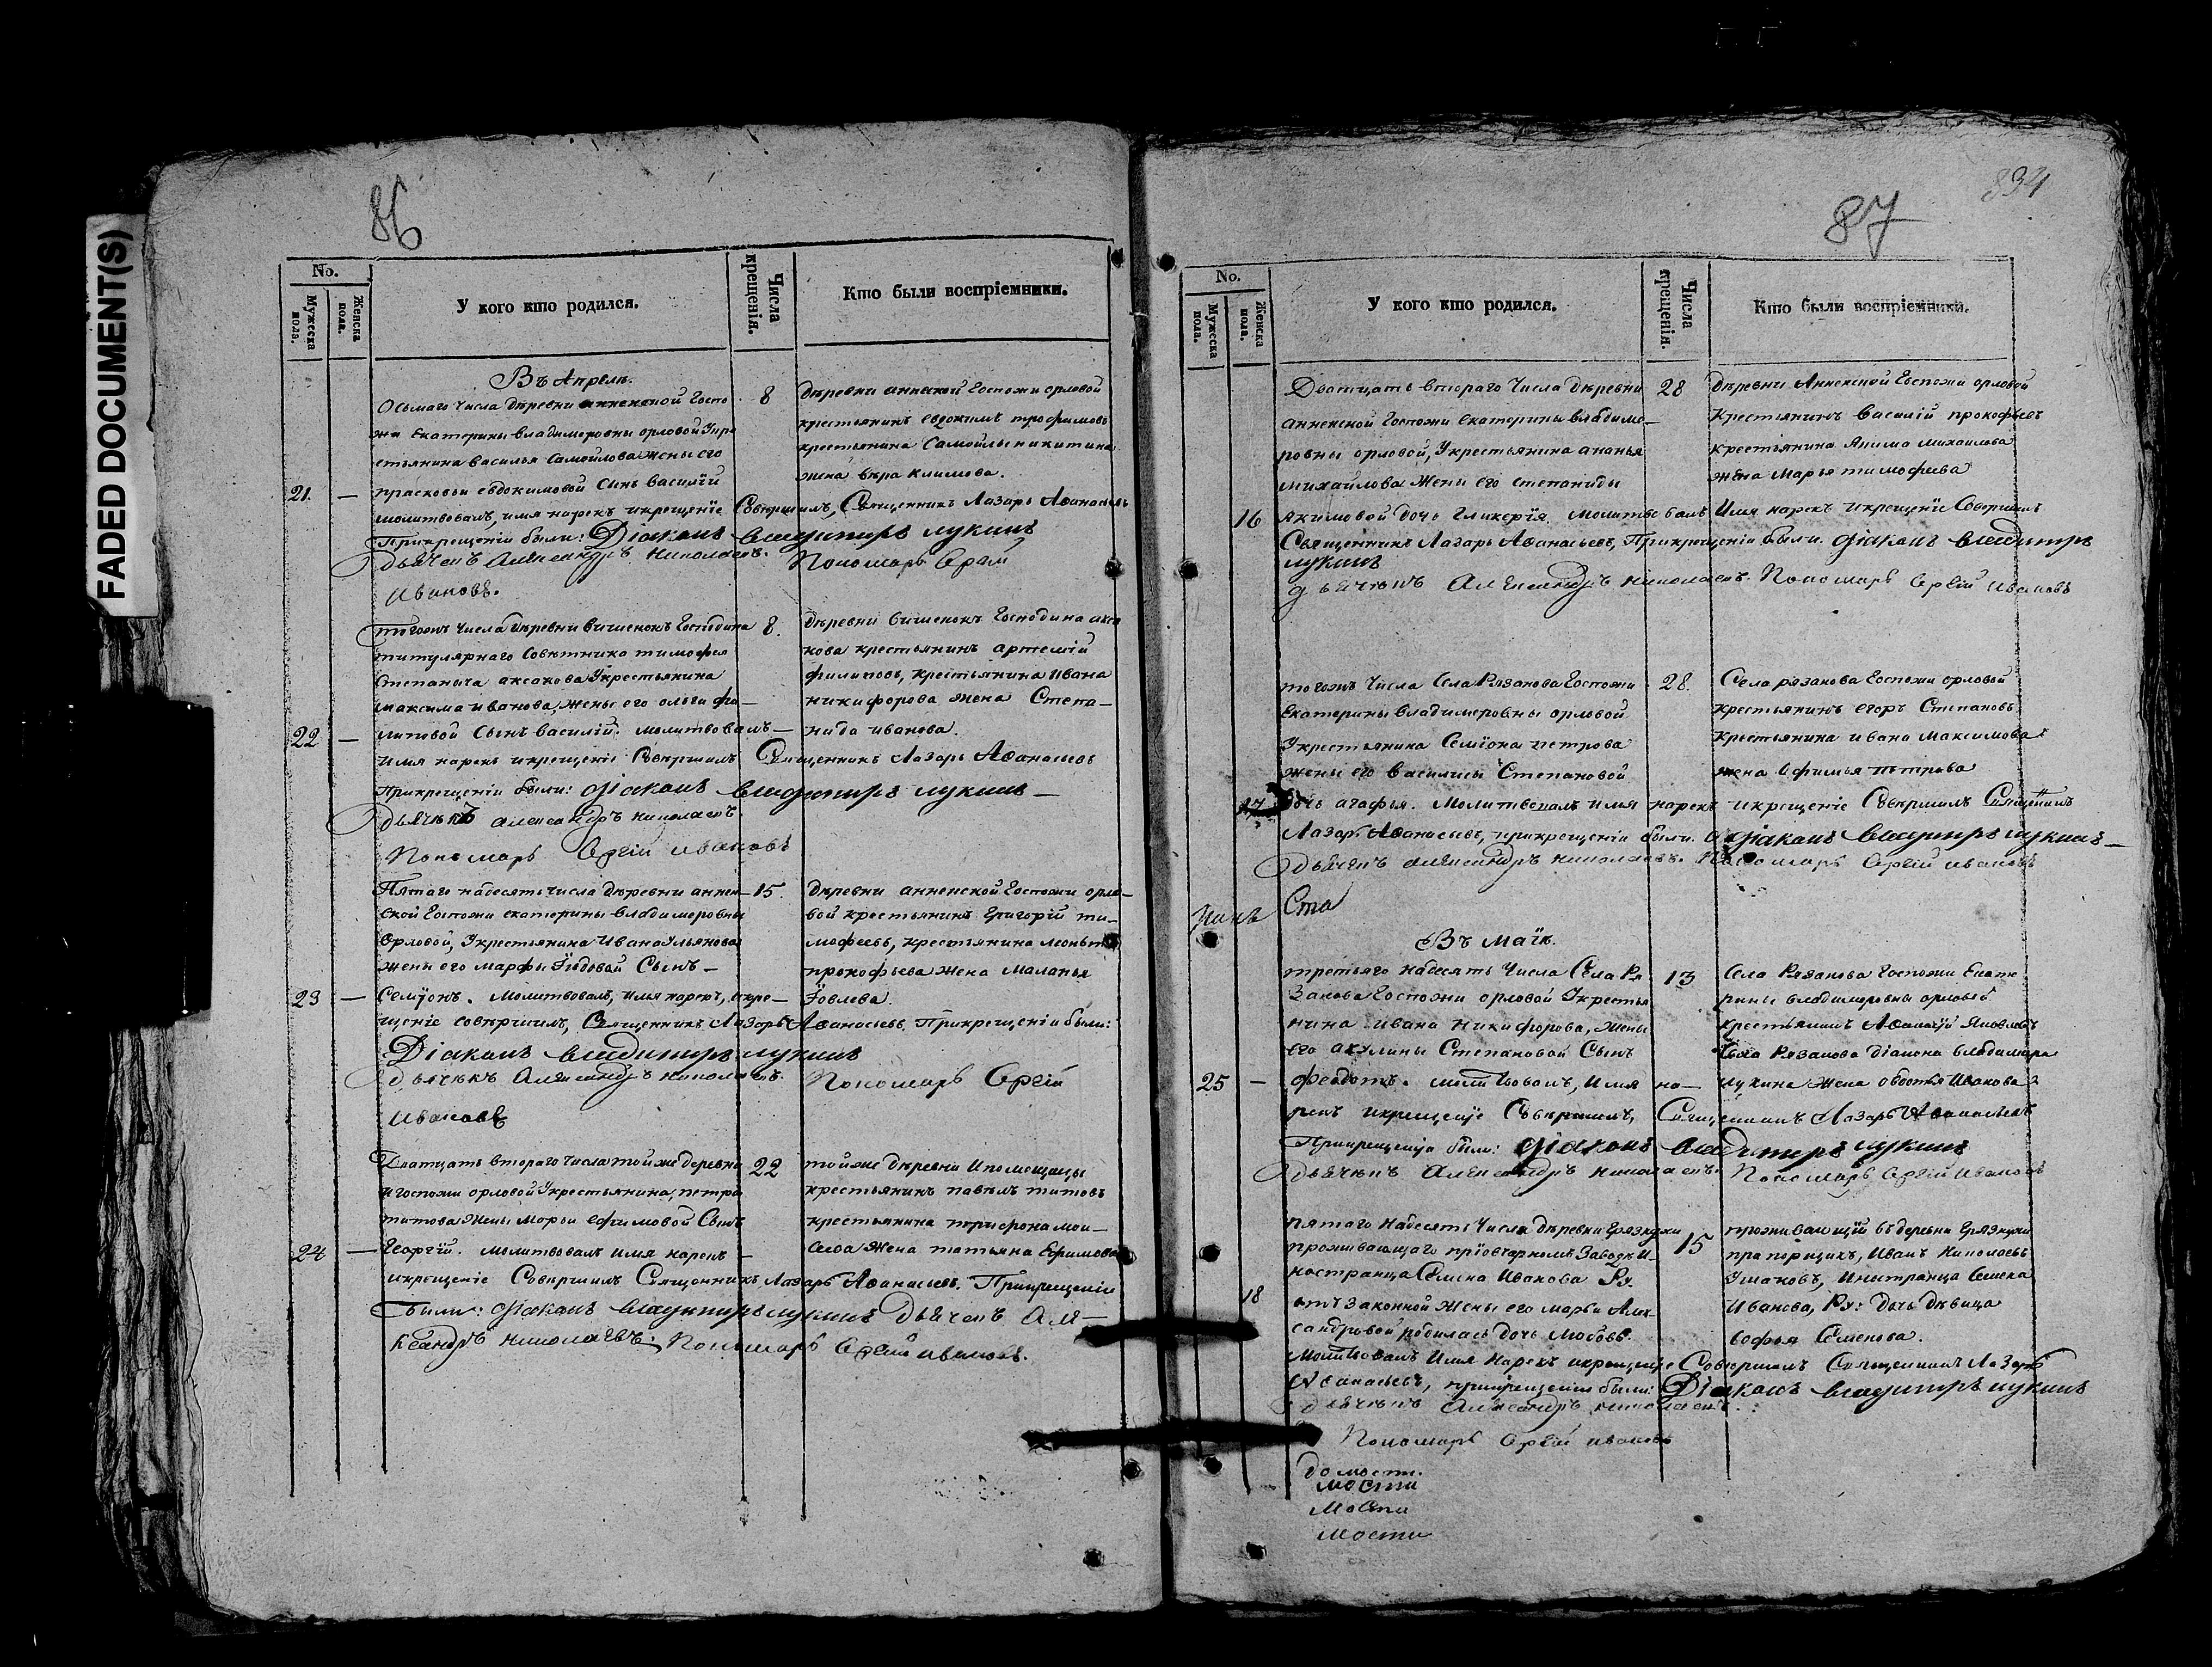 FADED DOCUMENT(S)
86
No.
Мужеска пола.
Женска пола.
У кого кто родился.
Числа крещенія.
Кто были воспріемники.
Въ Апреле.
Осьмаго числа деревни анненской Госпо
жи Екатерины владимеровны орловой Укре
стьянина василья Самойлова жены его
21. — прасковьи евдокимовой Сынъ василій
молитвовалъ, имя нарекъ икрещеніе Совершилъ, Священникъ Лазарь Аѳанасьевъ
Прикрещеніи были: Діаконъ владимиръ лукинъ
дьячекъ Александръ николаевъ. Пономарь Сргій
ивановъ.
8
деревни аннской Госпожи орловой
крестьянинъ евдокимъ трофимовъ
крестьянина Самойлы никитина
жена вера климова.
тогожъ числа деревни вишенокъ Господина
титулярнаго Советника тимофея
Степаныча аксакова Укрестьянина
максима иванова, жены его ольги фи—
22 — липовой Сынъ василій. молитвовалъ—
имя нарекъ икрещеніе Совершилъ Священникъ Лазарь Аѳанасьевъ
Прикрещеніи были: діаконъ владимиръ лукинъ —
дьячекъ александръ николаевъ
Пономарь Сргій ивановъ
8.
деревни вишенокъ Господина акса
кова крестьянинъ артемій
филиповъ, крестьянина ивана
никифорова жена Степа—
нида иванова.
Пятаго надесять числа деревни аннен—
ской Госпожи екатерины владимеровны
Орловой, Укрестьянина Ивана Ульянова
жены его марфы Сынъ —
23 — Семіонъ. молитвовалъ, имя нарекъ, икре—
щеніе совершилъ, Священникъ Лазарь Аѳанасьевъ. Прикрещеніи были:
Діаконъ владимиръ лукинъ
дьячекъ Александръ николаевъ. Пономарь Сргій
ивановъ
15.
деревни анненской Госпожи орло—
вой крестьянинъ Григорій ти—
мофеевъ, крестьянина
прокофьева жена маланья
Двадцать втораго числа тойже деревни
игоспожи орловой Укрестьянина, петра
титова жены марьи ефимовой Сынъ
24 — Георгій. молитвовалъ имя нарекъ —
икрещеніе Совершилъ Священникъ Лазарь Аѳанасьевъ. Прикрещеніи
были: діаконъ владимиръ лукинъ дьячекъ Але—
ксандръ николаевъ; Пономарь Сргій ивановъ.
22
тойже деревни ипомещицы
крестьянинъ павелъ титовъ
крестьянина трифона мои—
сеева жена татьяна Ефимова
834
87
No.
Мужеска пола.
Женска пола.
У кого кто родился.
Числа крещенія.
Кто были воспріемники.
Дватцать втораго числа деревни
анненской Госпожи екатерины владиме—
ровны орловой, Укрестьянина ананья
михайлова жены его степаниды
16 Акимовой дочь гликерія. молитвовалъ Имя нарекъ икрещеніе Совершилъ
Священникъ Лазарь Аѳанасьевъ, Прикрещеніи были. діаконъ владимиръ
лукинъ
дьячекъ Александръ николаевъ. Пономарь Сргій ивановъ
28
деревни Анненской Госпожи орловой
крестьянинъ василій прокофьевъ
крестьянина Акима михаилова
жена марья тимофеева
тогожъ числа Села Рязанова Госпожи
Екатерины владимеровны орловой
Укрестьянина Семіона петрова
жены его василисы Степановой
17 дочь агафья. молитвовалъ имя нарекъ икрещеніе Совершилъ Священникъ
Лазарь Аѳанасьевъ, прикрещеніи были. діаконъ владимиръ лукинъ—
дьячекъ александръ николаевъ. Пономарь Сргій ивановъ
28.
Села рязанова Госпожи орловой
крестьянинъ егоръ Степановъ
крестьянина ивана максимова
жена Офимья петрова
Ста
Въ маие.
третьяго надесять числа Села Ря
занова Госпожи орловой Укрестья
нина ивана никифорова, жены
его акулины Степановой Сынъ
25 — Феодотъ. молитвовалъ, имя на—
рекъ икрещеніе Совершилъ, Священникъ Лазарь Аѳанасьевъ
Прикрещеніи были: діаконъ владимиръ лукинъ
дьячекъ Александръ николаевъ. Пономарь Сргій ивановъ
13
Села Рязанова госпожи Екате
рины владимеровны орловой
крестьянинъ Аѳанасій Яковлевъ
Села Рязанова діакона владимира
лукина жена Иванова
пятаго надесять числа деревни Грязнухи
проживающаго заводе и—
ностранца Семена Иванова
18 отъ законной жены его марьи Алек
сандровой родилась дочь любовь.
молитвовалъ имя нарекъ икрещеніе Совершилъ Священникъ Лазарь
Аѳанасьевъ, прикрещеніи были: Діаконъ владимиръ лукинъ
дьячекъ александръ николаевъ.
Пономарь Сргій ивановъ
15
проживающій въ деревне Грязнухе
прапорщикъ, Иванъ Николаевъ
Ушаковъ, Иностранца Семена
Иванова, дочь девица
софья Семенова.
мости
мости
мости